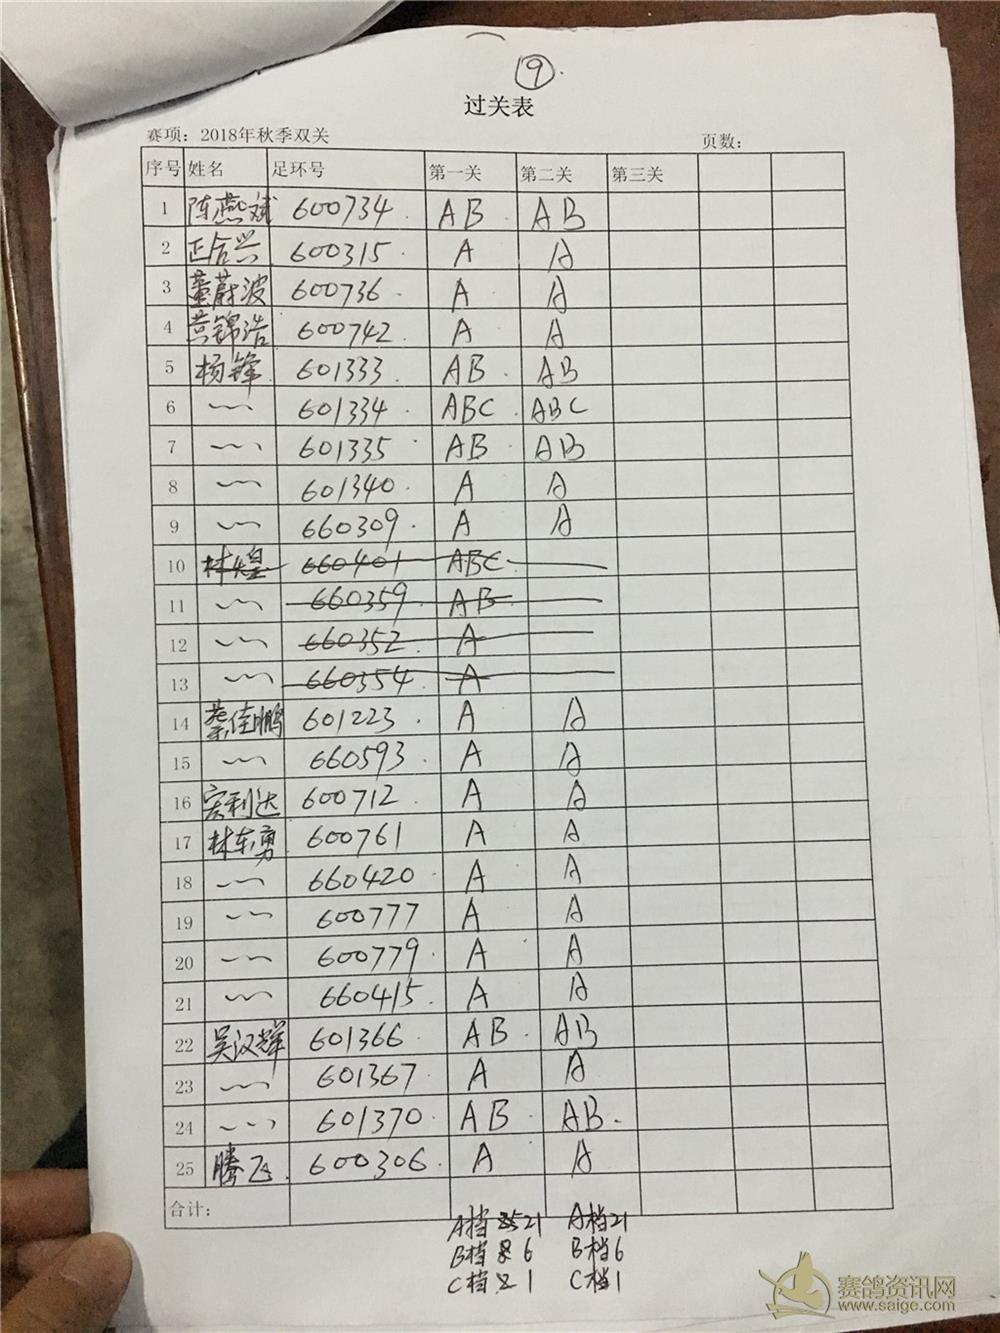 9
过关表
赛项：2018年秋季双关 页数：
序号 姓名 足环号 第一关 第二关 第三关
1 陈燕斌 600734 AB AB
2 正合兴 600315 A A
3 董蔚波 600736 A A
4 黄锦浩 600742 A A
5 杨锋 601333 AB AB
6 〜 601334 ABC ABC
7 〜 601335 AB AB
8 〜 601340 A A
9 〜 660309 A A
10 林煌 660401 ABC
11 〜 660359 AB
12 〜 660352 A
13 〜 660354 A
14 蔡佳鹏 601223 A A
15 〜 660593 A A
16 宏利达 600712 A A
17 林东勇 600761 A A
18 〜 660420 A A
19 〜 600777 A A
20 〜 600779 A A
21 〜 660415 A A
22 吴汉辉 601366 AB AB
23 〜 601367 A A
24 〜 601370 AB AB
25 腾飞 600306 A A
合计：
A档 21 A档21
B档 6 B档6
C档 1 C档1
赛鸽资讯网
www.saige.com